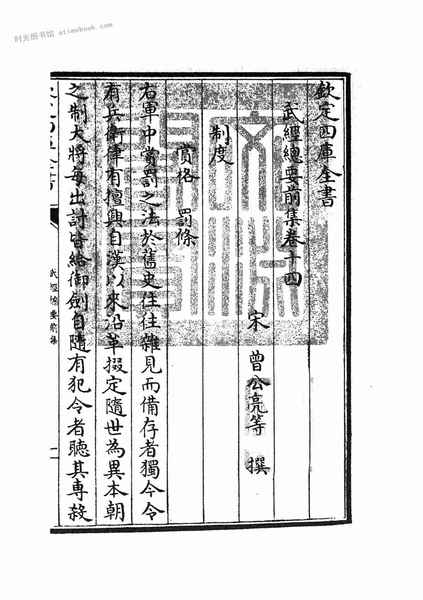 时光图书馆 etimebook.com
欽定四庫全書
武經總要前集卷十四
宋 曾公亮等 撰
制度
賞格 罰條
右軍中賞罰之法於舊史往往雜見而備存者獨今令
有兵衛律有擅興自漢以來沿革掇定隨世為異本朝
之制大將每出討皆給御劍自隨有犯令者聽其專殺
武經總要前集